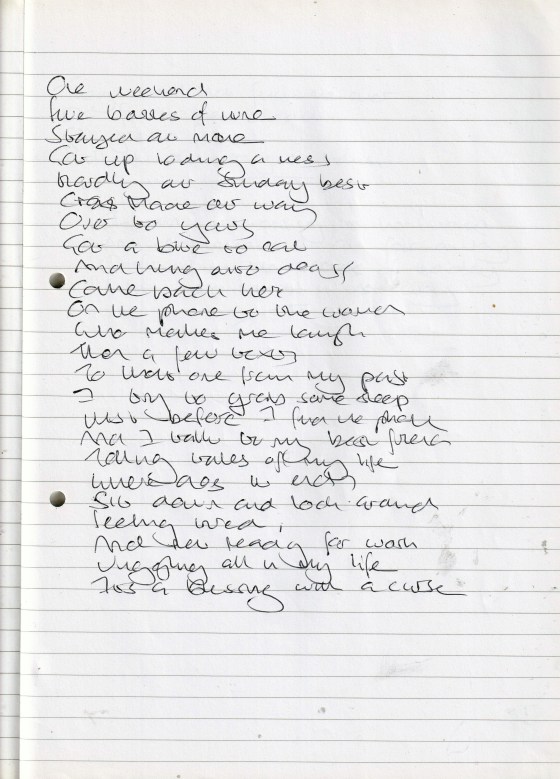 One weekend
Five bottles of wine
Stayed at mine
Got up looking a mess
Hardly our Sunday best
Made our way
Over to yours
Got a bite to eat
And hung our
Came back here
On the phone to the woman
Who makes me laugh
Then a few texts
To that one from my past
I try to grab some sleep
Just before I find the phone
And I talk to my best friend
Telling tales of my life
Where does it end
Sit down and look around
Feeling tired,
And get ready for work
Juggling all in my life
It's a blessing with a curse